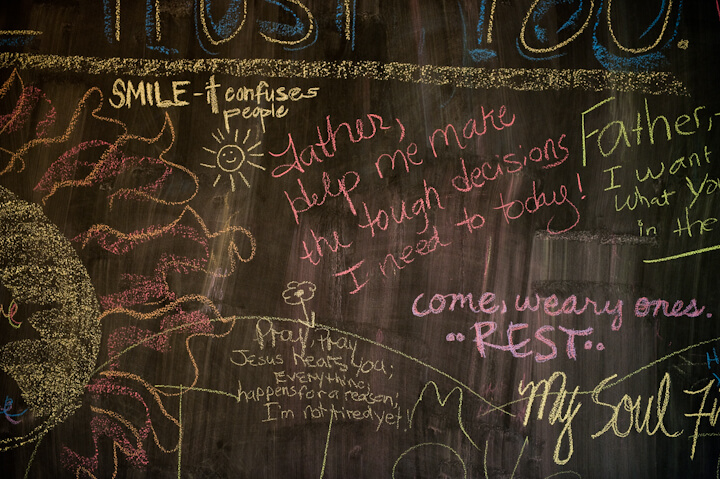 TRUST YOU.
SMILE - it confuses
people
Father,
Help me make
the tough decisions
I need to today!
Father,
I want
what you
in the
come, weary ones.
..REST..
Pray, pray
Jesus hears you;
Everything
happens for a reason;
I'm not tired yet!
My Soul